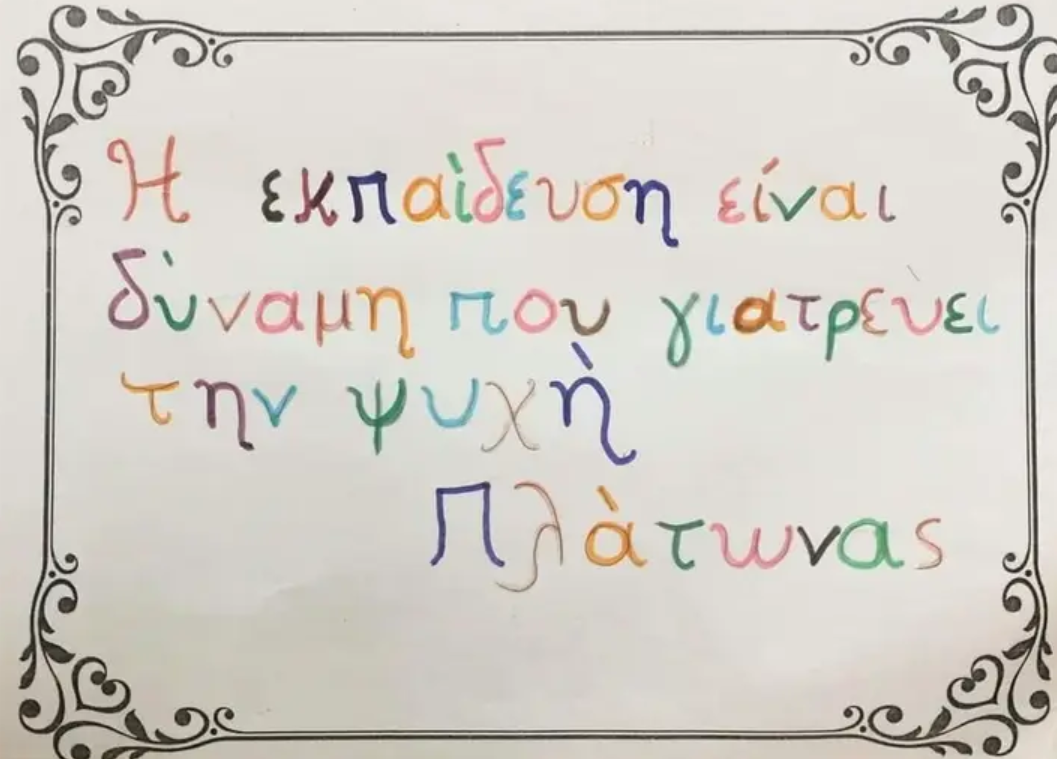 Η εκπαὶδευση είναι
δὺναμη που γιατρεὺει
την ψυχὴ
Πλὰτωνας